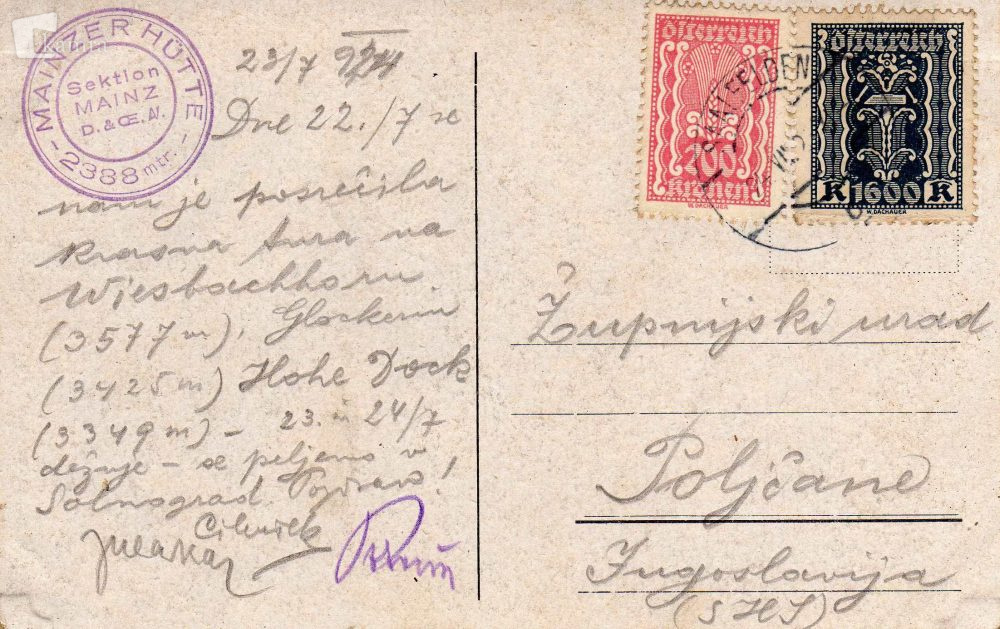 MAINZER HÜTTE
Sektion
MAINZ
D. & Œ. AV.
- 2388 mtr. -
23/7
Dne 22./7 se
nam je posrečila
krasna tura na
Wiesbachhorn
(3577 m), Glockerin
(3425 m) Hohe Dock
(3349 m) - 23. in 24/7
dežuje - se peljemo v
Solnograd. Pozdrav!
Österreich
700
Kronen
Österreich
K 1600 K
W. DACHAUER
Župnijski urad
Poljčane
Jugoslavija
(SHS)